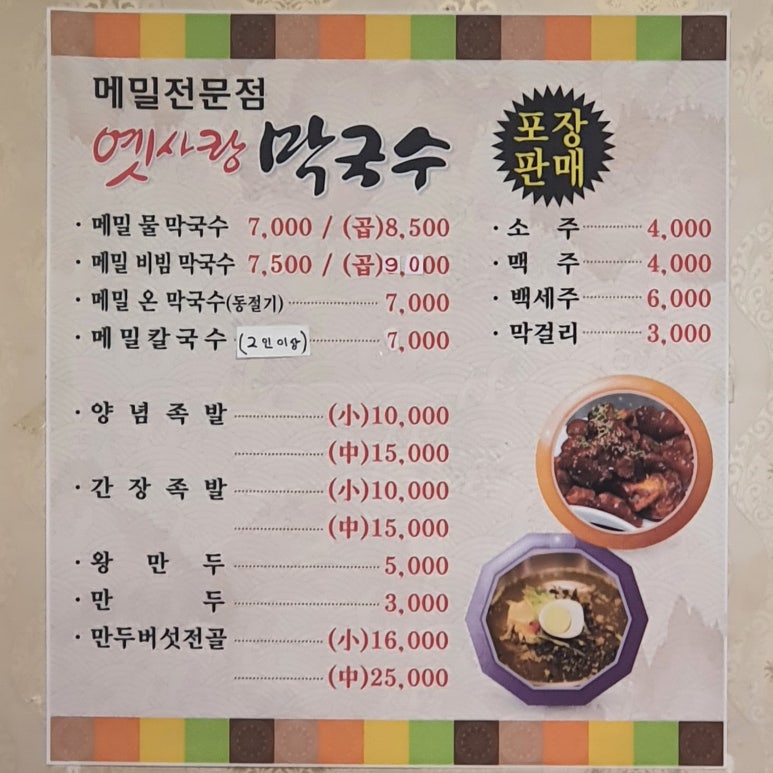 메밀전문점
옛사랑 막국수
포장
판매
· 메밀 물 막국수 7,000 / (곱)8,500
· 메밀 비빔 막국수 7,500 / (곱)9,000
· 메밀 온 막국수(동절기) 7,000
· 메밀칼국수 (2인이상) 7,000
· 양념족발 (小)10,000
(中)15,000
· 간장족발 (小)10,000
(中)15,000
· 왕만두 5,000
· 만두 3,000
· 만두버섯전골 (小)16,000
(中)25,000
· 소주 4,000
· 맥주 4,000
· 백세주 6,000
· 막걸리 3,000